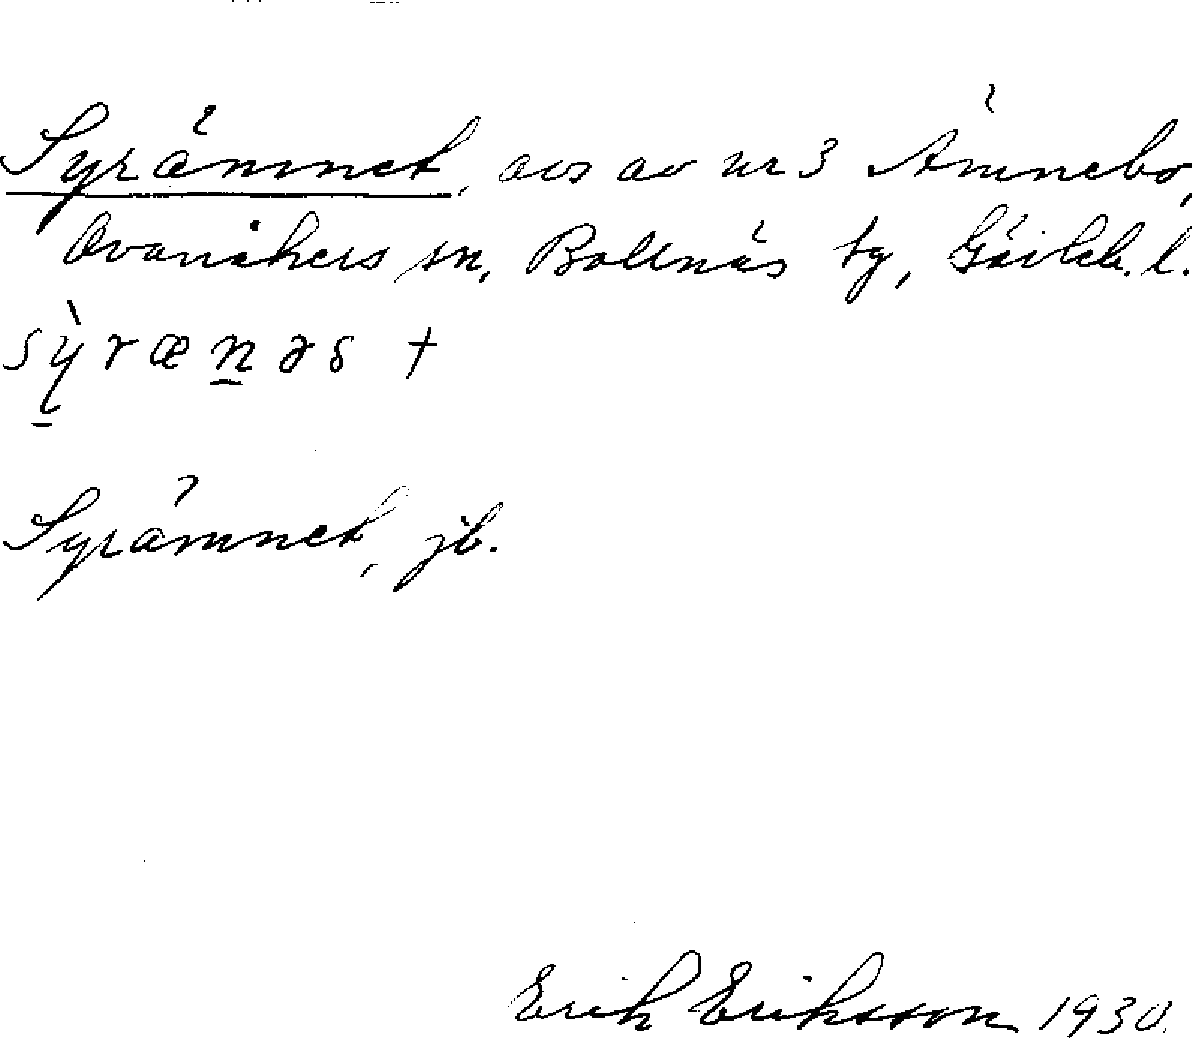 Syrämnet, avs av nr 3 Ämnebo,
Ovanåkers sn, Bollnäs tg, Gävleb. l.
sỳræn̲əs +
Syrämnet, jb.
Erik Eriksson 1930.